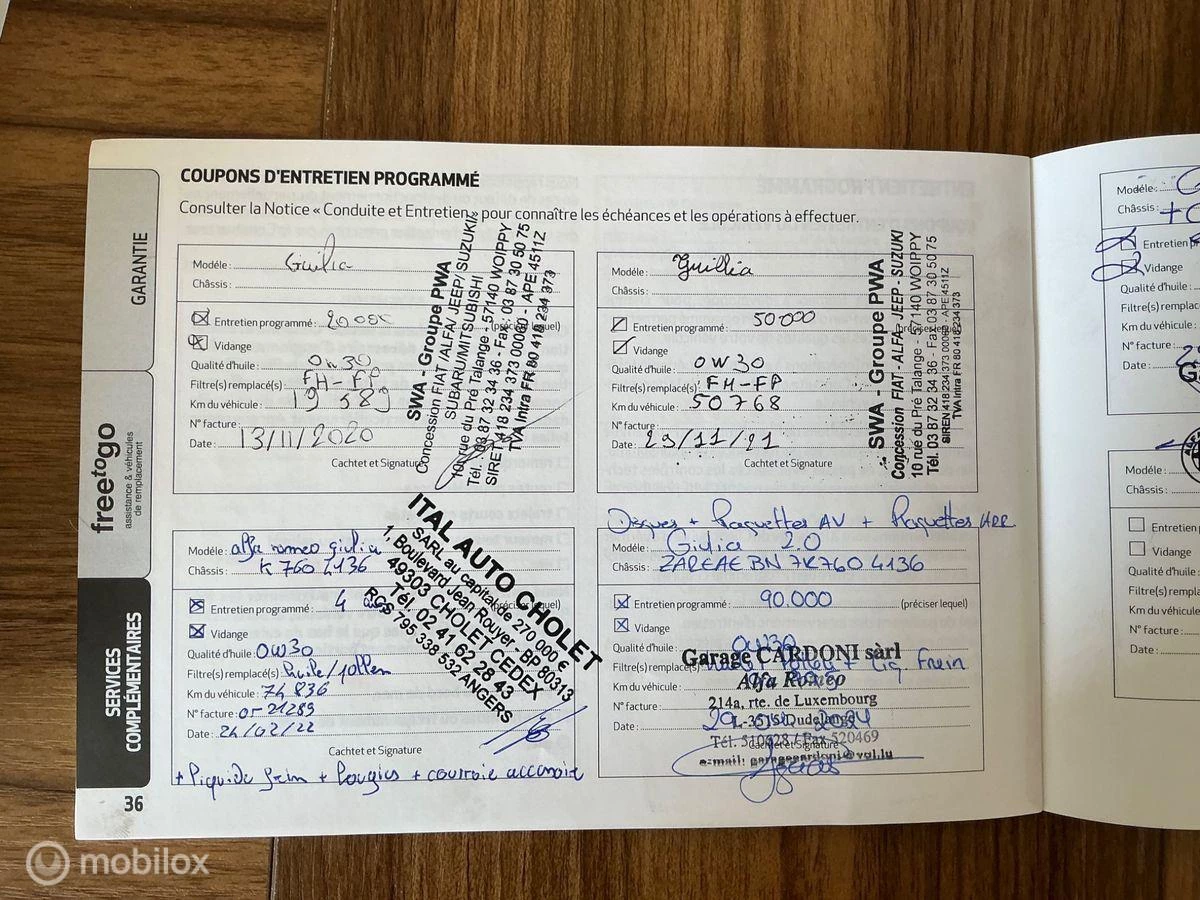 COUPONS D'ENTRETIEN PROGRAMMÉ
Consulter la Notice « Conduite et Entretien » pour connaître les échéances et les opérations à effectuer.
GARANTIE
freetogo
assistance & véhicules
de remplacement
SERVICES
COMPLÉMENTAIRES
36
Modéle : Guilia
Châssis :
Entretien programmé : 20000 (préciser lequel)
Vidange
Qualité d'huile : 0w30
Filtre(s) remplacé(s) : FH-FP
Km du véhicule : 19 589
N° facture :
Date : 13/11/2020
Cachtet et Signature
SWA - Groupe PWA
Concession FIAT /ALFA/ JEEP/ SUZUKI
SUBARU/MITSUBISHI
10 rue du Pré Talange - 57140 WOIPPY
Tél. 03 87 32 34 36 - Fax. 03 87 30 50 75
SIRET 418 234 373 00060 - APE 4511Z
TVA Intra FR 80 418 234 373
Modéle : Guillia
Châssis :
Entretien programmé : 50000 (préciser lequel)
Vidange
Qualité d'huile : 0W30
Filtre(s) remplacé(s) : FH-FP
Km du véhicule : 50768
N° facture :
Date : 23/11/21
Cachtet et Signature
SWA - Groupe PWA
Concession FIAT - ALFA - JEEP - SUZUKI
10 rue du Pré Talange - 57140 WOIPPY
Tél. 03 87 32 34 36 - Fax 03 87 30 50 75
SIREN 418 234 373 00060 - APE 4511Z
TVA Intra FR 80 418 234 373
Modéle : alfa romeo giulia
Châssis : K 760 4136
Entretien programmé : 4 (préciser lequel)
Vidange
Qualité d'huile : 0W30
Filtre(s) remplacé(s) : huile/pollen
Km du véhicule : 74 836
N° facture : OR 21289
Date : 24/02/22
Cachtet et Signature
+ liquide frein + bougies + courroie accessoire
ITAL AUTO CHOLET
SARL au capital de 270 000 €
1, Boulevard Jean Rouyer - BP 80313
49303 CHOLET CEDEX
Tél. 02 41 62 28 43
RCS 795 338 532 ANGERS
Disques + Plaquettes AV + Plaquettes ARR
Modéle : Giulia 2.0
Châssis : ZAREAEBN7K7604136
Entretien programmé : 90.000 (préciser lequel)
Vidange
Qualité d'huile : 0W30
Filtre(s) remplacé(s) + Liq. Frein
Km du véhicule :
N° facture :
Date :
Cachtet et Signature
Garage CARDONI sàrl
Alfa Romeo
214a, rte. de Luxembourg
Tél. 510628 / Fax 520469
e-mail: garagecardoni@vol.lu
Modéle :
Châssis :
Entretien
Vidange
Qualité d'huile :
Filtre(s) remplac
Km du véhicule :
N° facture :
Date :
Modéle :
Châssis :
Entretien
Vidange
Qualité d'huile :
Filtre(s) rempla
Km du véhicule
N° facture :
Date :
mobilox